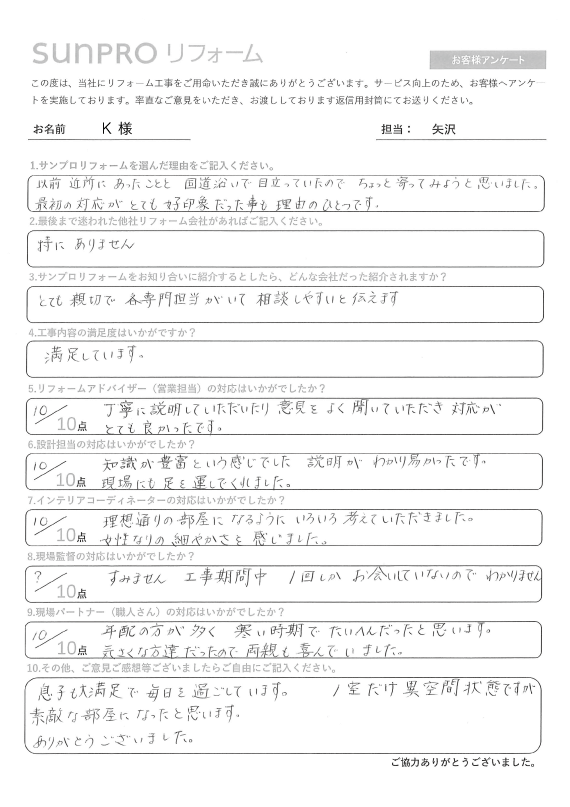 sunPRO リフォーム
お客様アンケート
この度は、当社にリフォーム工事をご用命いただき誠にありがとうございます。サービス向上のため、お客様へアンケー
トを実施しております。率直なご意見をいただき、お渡ししております返信用封筒にてお送りください。
お名前 K 様 担当： 矢沢
1.サンプロリフォームを選んだ理由をご記入ください。
以前 近所に あったことと 国道沿いで目立っていたので ちょっと寄ってみようと思いました。
最初の対応が とても好印象だった事も 理由のひとつです。
2.最後まで迷われた他社リフォーム会社があればご記入ください。
特に ありません
3.サンプロリフォームをお知り合いに紹介するとしたら、どんな会社だった紹介されますか？
とても 親切で 各専門担当がいて 相談しやすいと伝えます
4.工事内容の満足度はいかがですか？
満足しています。
5.リフォームアドバイザー（営業担当）の対応はいかがでしたか？
10/10点 丁寧に説明していただいたり 意見を よく聞いていただき 対応が
とても良かったです。
6.設計担当の対応はいかがでしたか？
10/10点 知識が豊富という感じでした 説明が わかり易かったです。
現場にも足を運んでくれました。
7.インテリアコーディネーターの対応はいかがでしたか？
10/10点 理想通りの部屋に なるように いろいろ考えていただきました。
女性なりの細やかさを感じました。
8.現場監督の対応はいかがでしたか？
?/10点 すみません 工事期間中 1回しか お会いしていないので わかりません
9.現場パートナー（職人さん）の対応はいかがでしたか？
10/10点 年配の方が多く 寒い時期で たいへんだったと思います。
元気な方達だったので 両親も喜んでいました。
10.その他、ご意見ご感想等ございましたらご自由にご記入ください。
息子も大満足で毎日を過ごしています。 1室だけ異空間状態ですが
素敵な部屋になったと思います。
ありがとうございました。
ご協力ありがとうございました。